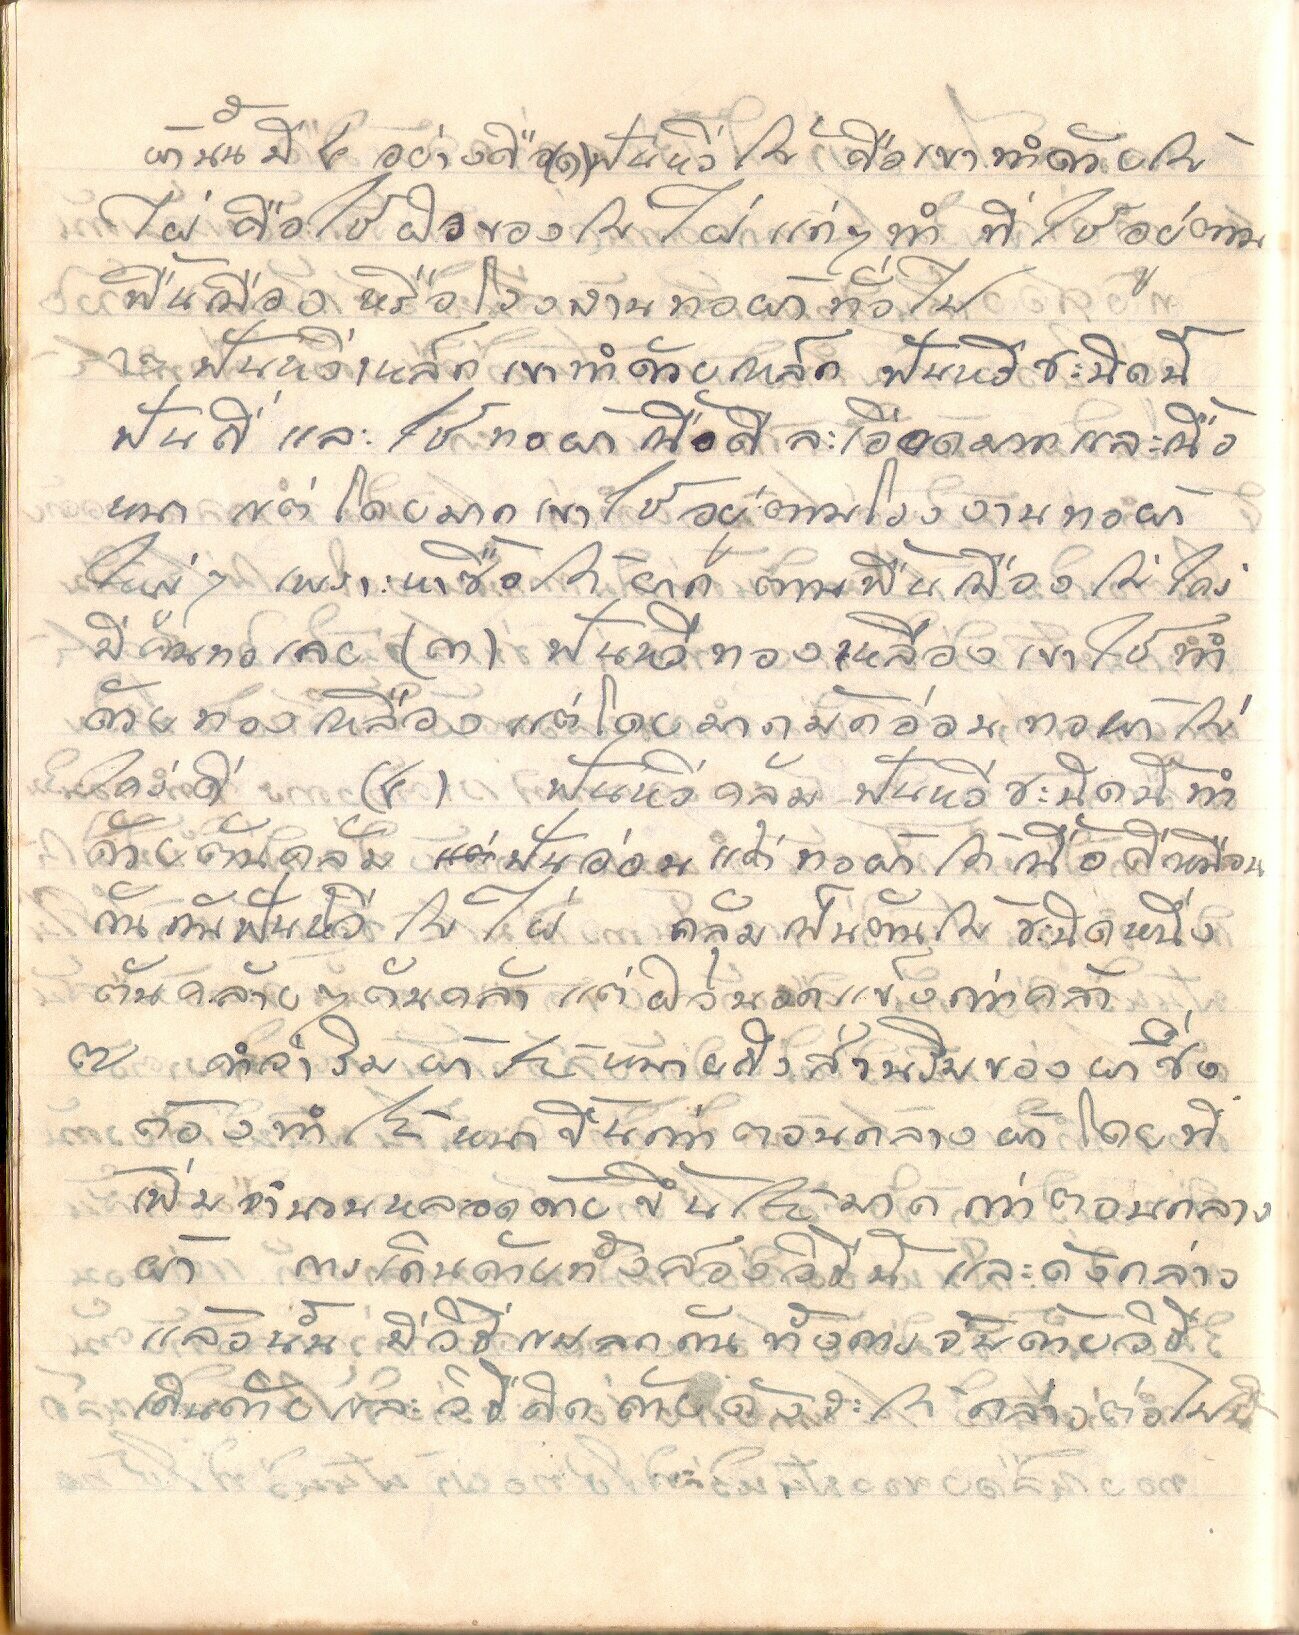 ผ้านั้นมี ๔ อย่างคือ (๑) ฟันหวีไม้ คือเขาทำด้วยไม้
ไผ่ คือใช้ผิวของไม้ไผ่แก่ๆ ทำ ที่ใช้อยู่ตาม
พื้นเมือง หรือโรงงานทอผ้าทั่วไป
๒ ฟันหวีเหล็ก เขาทำด้วยเหล็ก ฟันหวีชะนิดนี้
ฟันถี่ และใช้ทอผ้าเนื้อดีละเอียดมากและเนื้อ
หนา แต่โดยมากเขาใช้อยู่ตามโรงงานทอผ้า
ใหญ่ๆ เพราะหาซื้อได้ยาก ตามพื้นเมืองไม่ใคร่
มีผู้ทอเลย (๓) ฟันหวีทองเหลือง เขาใช้ทำ
ด้วยทองเหลือง แต่โดยมากมักอ่อน ทอผ้าไม่
ใคร่ดี (๔) ฟันหวีคลุ้ม ฟันหวีชะนิดนี้ทำ
ด้วยต้นคลุ้ม แต่ฟันอ่อน แต่ทอผ้าได้เนื้อดีเหมือน
กันกับฟันหวีไม้ไผ่ คลุ้มเป็นต้นไม้ชะนิดหนึ่ง
ต้นคล้ายๆ ต้นคล้า แต่ผิวนอกแข็งกว่าคล้า
๓ คำว่าริมผ้าได้หมายถึงส่วนริมของผ้าซึ่ง
ต้องทำให้หนาขึ้นกว่าตอนกลางผ้าโดยที่
เพิ่มจำนวนหลอดด้ายขึ้นให้มากกว่าตอนกลาง
ผ้า การเดินด้ายทั้งสองวิธีนี้ และดังกล่าว
แล้วนั้น มีวิธีแผลกกัน ทั้งการจับด้ายวิธี
เดินด้ายและวิธีคิดด้ายดังจะได้กล่าวต่อไปนี้